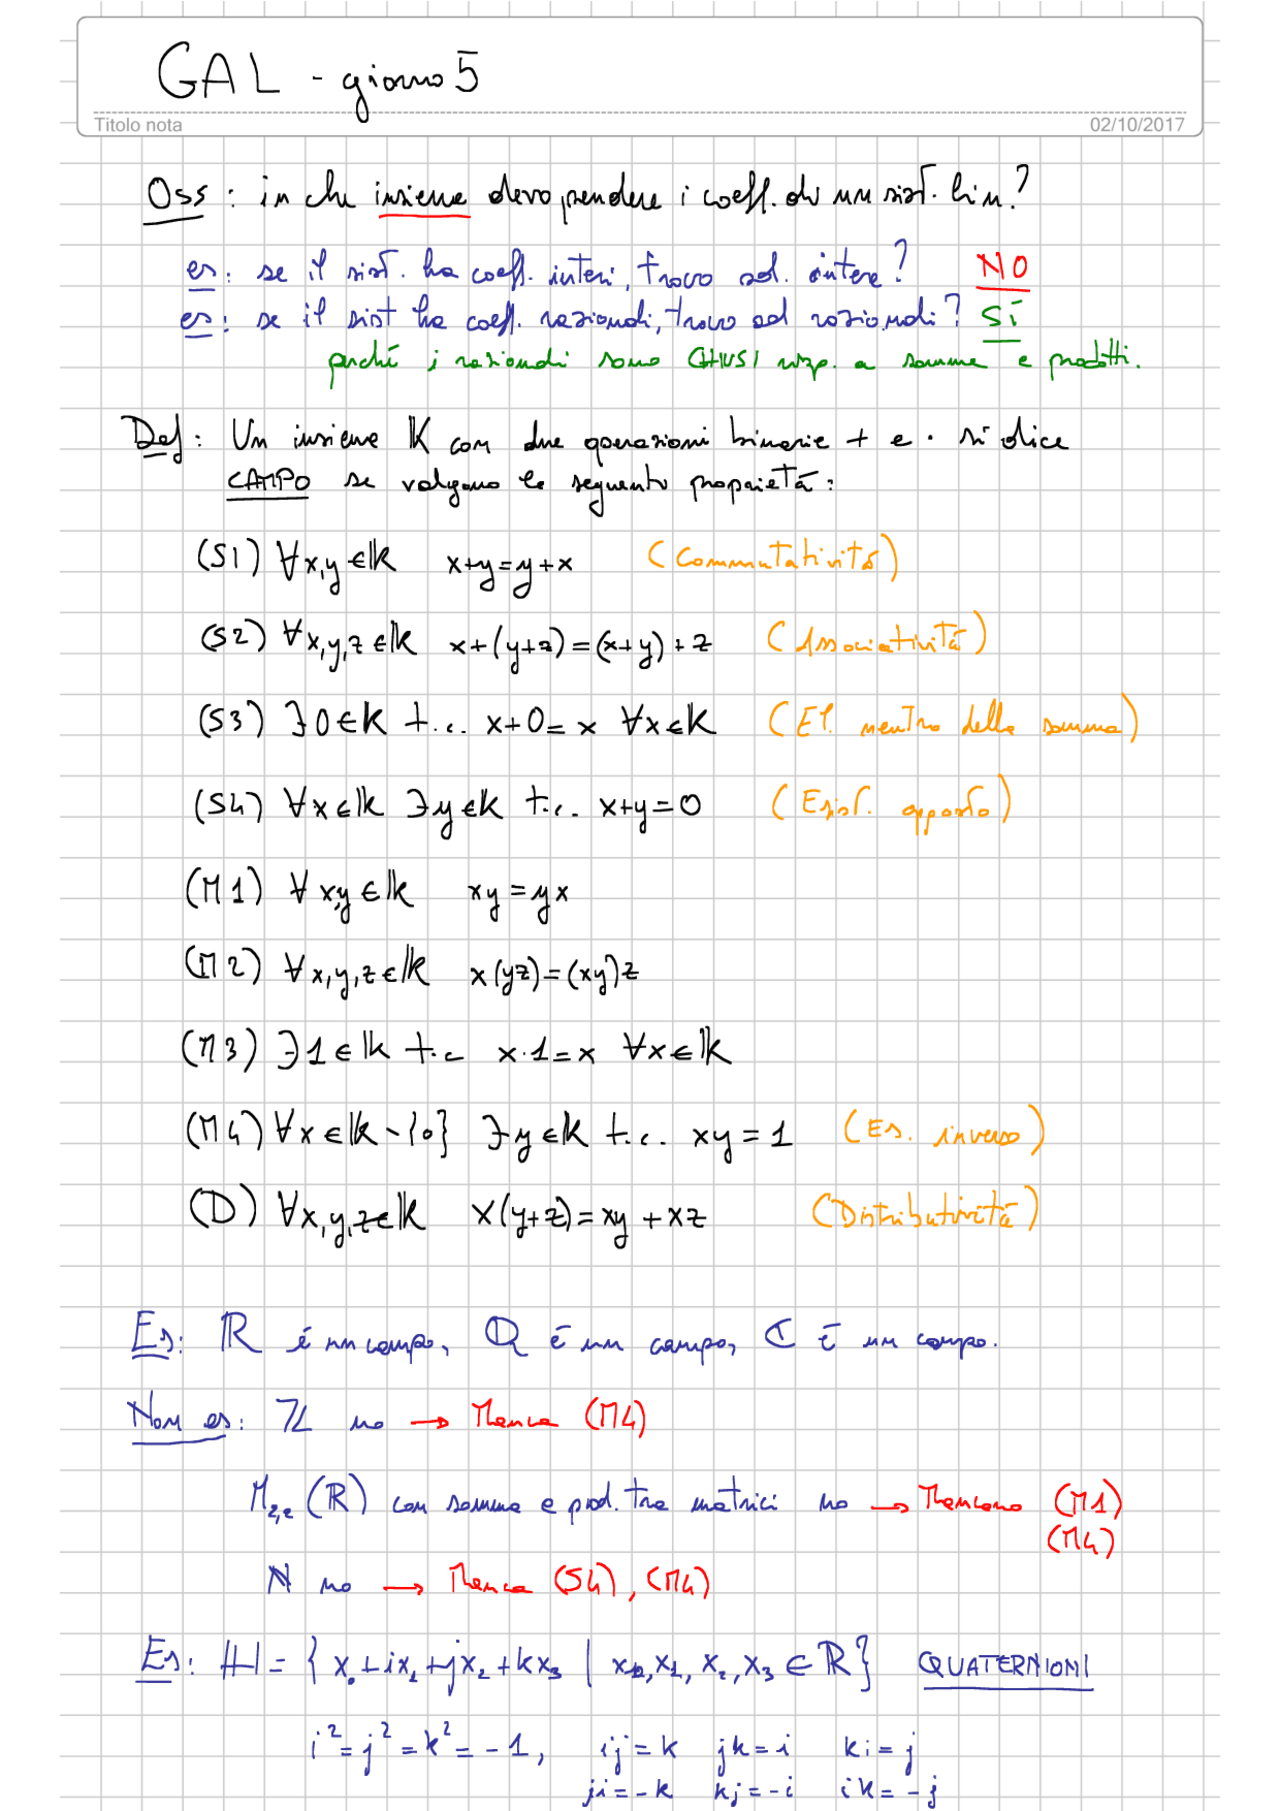 GAL - giorno 5
Titolo nota 02/10/2017
Oss: in che insieme devo prendere i coeff. di un sist. lin.?
es: se il sist. ha coeff. interi, trovo sol. intere? NO
es: se il sist ha coeff. razionali, trovo sol razionali? Sì
perché i razionali sono CHIUSI risp. a somme e prodotti.
Def: Un insieme K con due operazioni binarie + e · si dice
CAMPO se valgono le seguenti proprietà:
(S1) ∀x,y∈K x+y=y+x (Commutatività)
(S2) ∀x,y,z∈K x+(y+z)=(x+y)+z (Associatività)
(S3) ∃0∈K t.c. x+0=x ∀x∈K (El. neutro della somma)
(S4) ∀x∈K ∃y∈K t.c. x+y=0 (Esist. opposto)
(M1) ∀x,y∈K xy=yx
(M2) ∀x,y,z∈K x(yz)=(xy)z
(M3) ∃1∈K t.c x·1=x ∀x∈K
(M4) ∀x∈K-{0} ∃y∈K t.c. xy=1 (Es. inverso)
(D) ∀x,y,z∈K x(y+z)=xy+xz (Distributività)
Es: ℝ è un campo, ℚ è un campo, ℂ è un campo.
Non es: ℤ no → Manca (M4)
M₂,₂(ℝ) con somma e prod. tra matrici no → Mancano (M1)
(M4)
ℕ no → Manca (S4), (M4)
Es: ℍ = { x₀+ix₁+jx₂+kx₃ | x₀,x₁,x₂,x₃∈ℝ} QUATERNIONI
i²=j²=k²=-1, ij=k jk=i ki=j
ji=-k kj=-i ik=-j